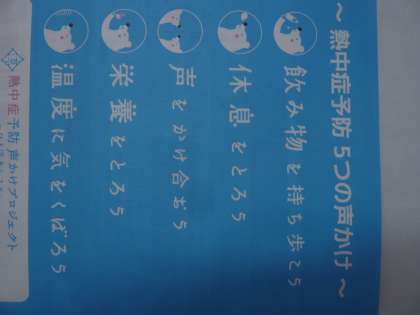 ～ 熱中症予防 5つの声かけ ～
飲み物を持ち歩こう
休息をとろう
声をかけ合おう
栄養をとろう
温度に気をくばろう
熱中症予防 声かけプロジェクト